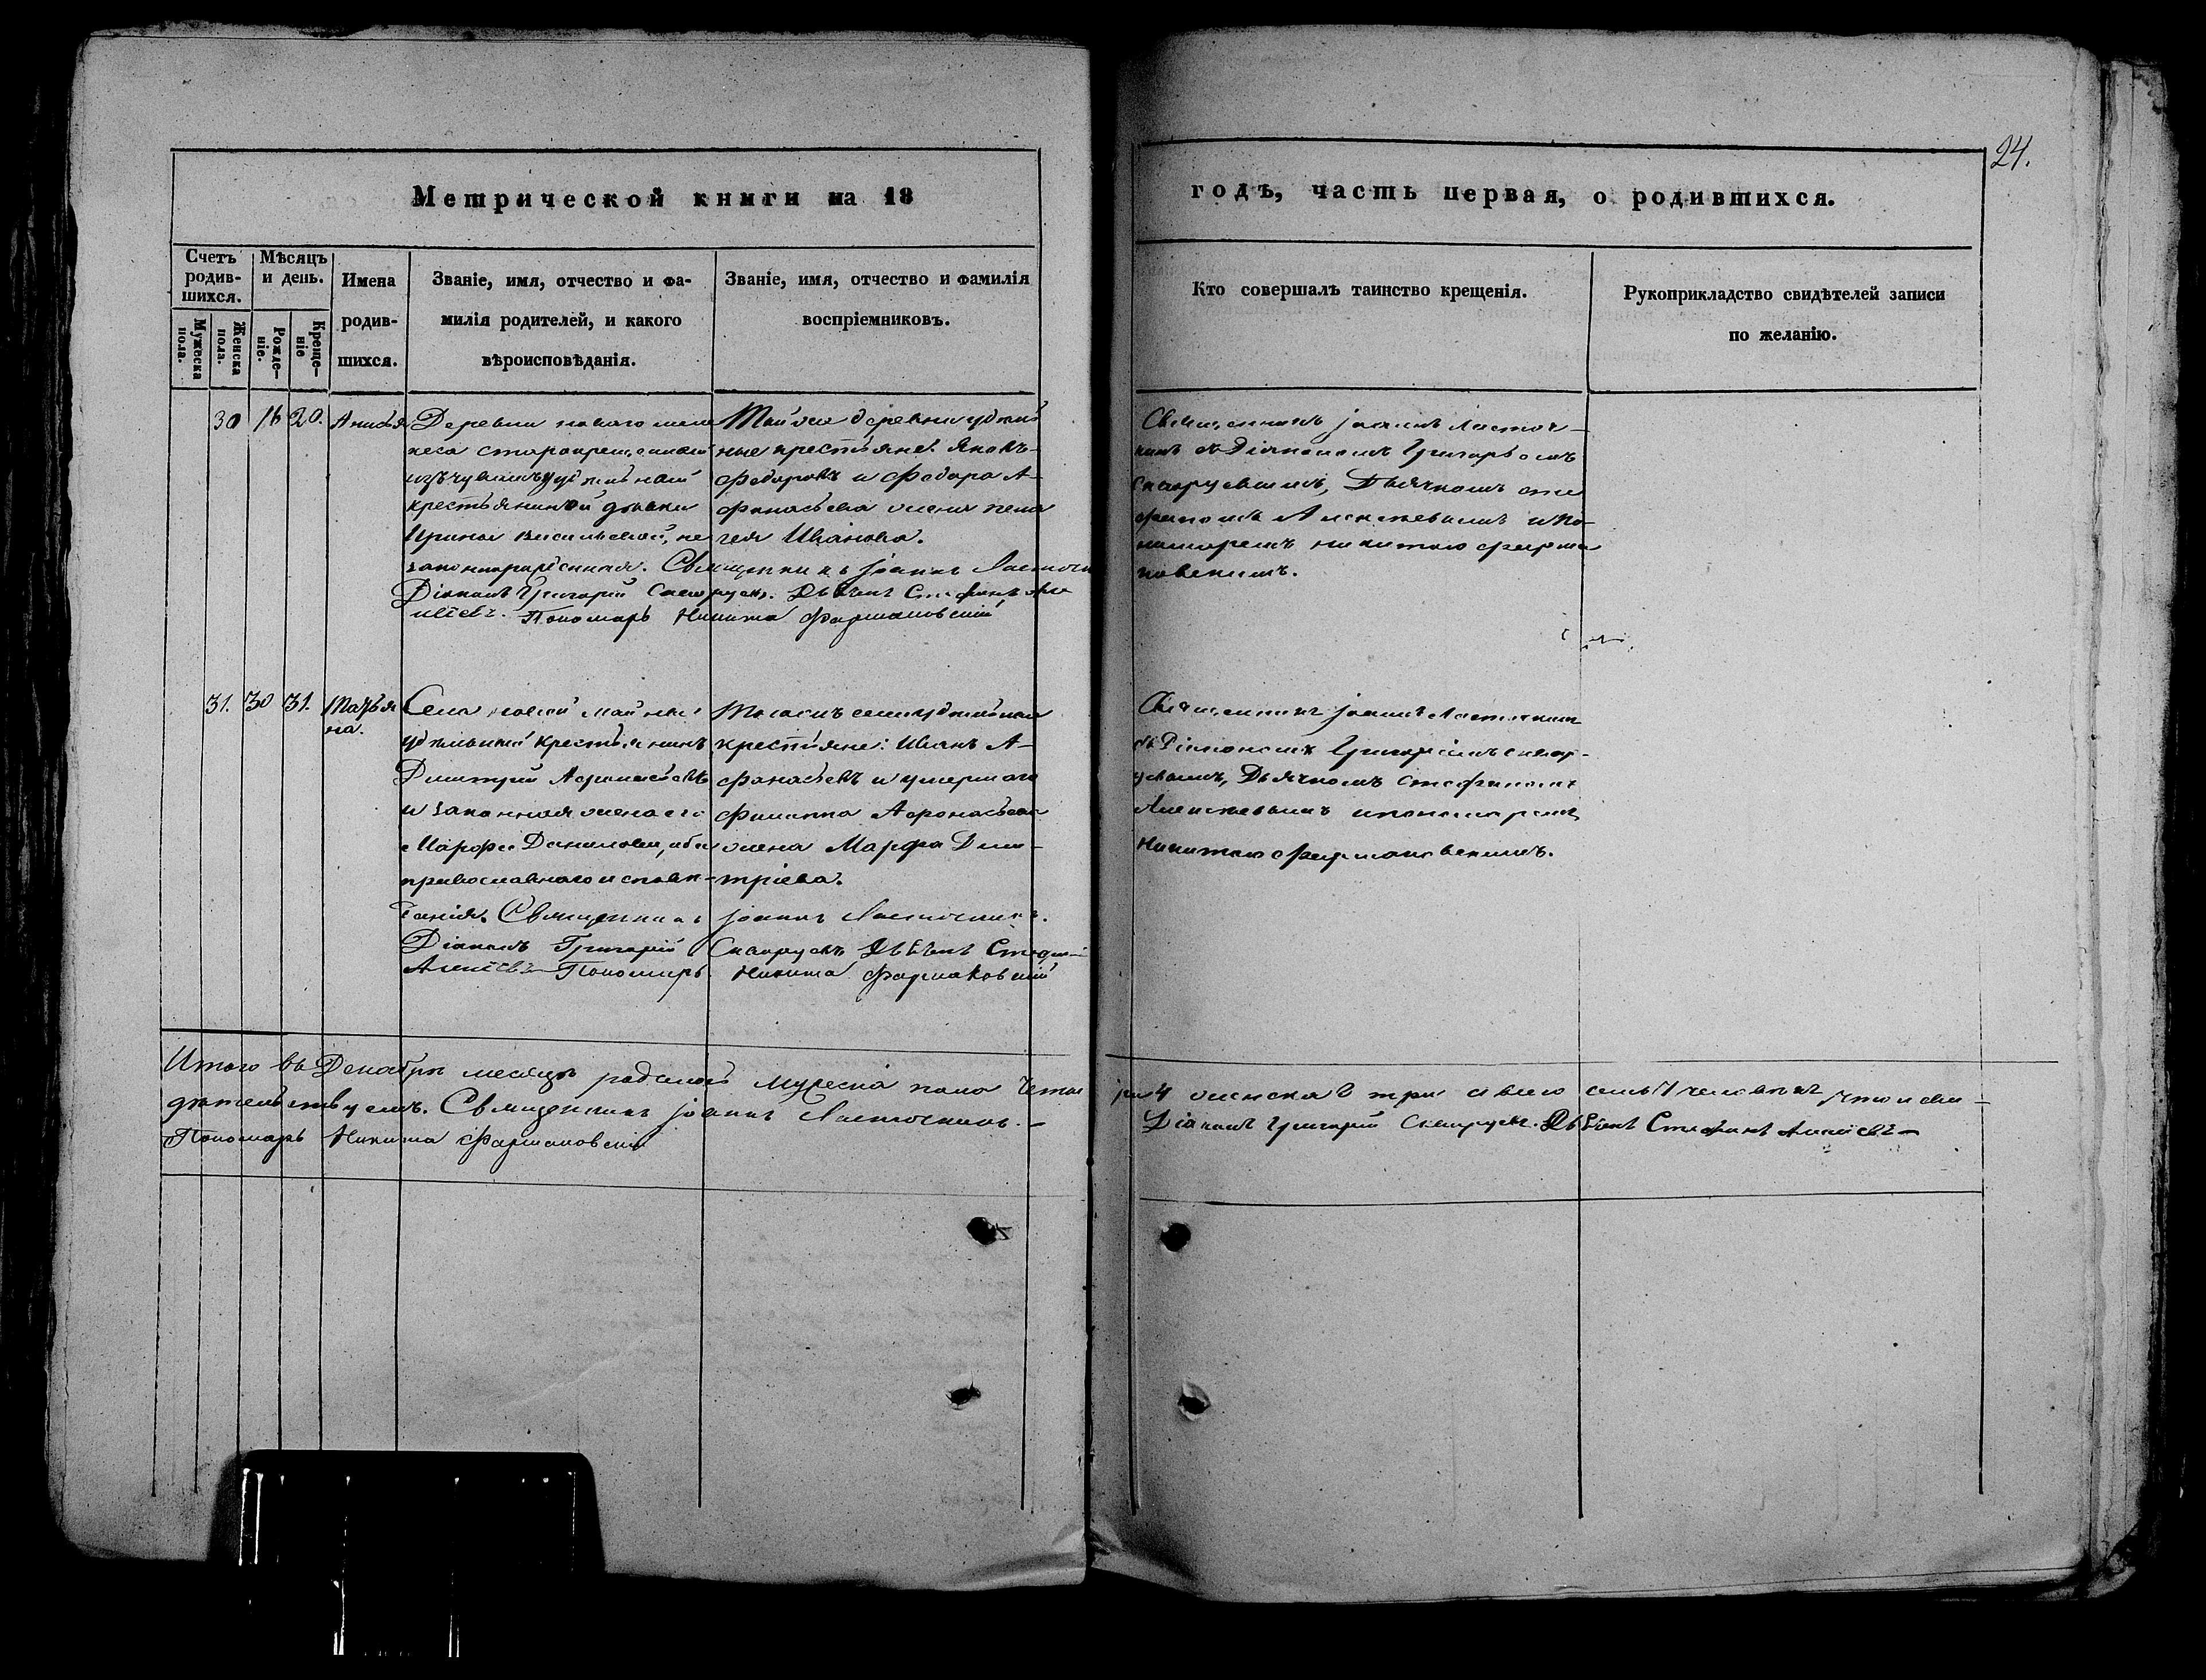 24.
Метрической книги на 18
годъ, часть первая, о родившихся.
Счетъ родив-шихся.
Мѣсяцъ и день.
Мужеска пола.
Женска пола.
Рожде-ніе.
Креще-ніе
Имена
родив-
шихся.
Званіе, имя, отчество и фа-
милія родителей, и какого
вѣроисповѣданія.
Званіе, имя, отчество и фамилія
воспріемниковъ.
Кто совершалъ таинство крещенія.
Рукоприкладство свидѣтелей записи
по желанію.
30 16 20. Анисья
Деревни новаго
изъ чувашъ удѣльной
крестьянской дѣвки
Ирины Васильевой, не
законнорожденная. Священникъ Іоаннъ
Діаконъ Григорій Стефанъ Але
ксѣевъ. Пономарь Никита Фармаковскій
Той же деревни удѣль
ные крестьяне: Яковъ
Федоровъ и Федора А-
фанасьева жена
Иванова.
Священникъ Іоаннъ Ласточ-
кинъ съ Діакономъ Григорьемъ
Дьячкомъ Сте
фаномъ Алексѣевымъ и по-
номаремъ Никитою Фарма
ковскимъ.
31. 30 31. Татья
на.
Села новой Майны
удѣльный крестьянинъ
Дмитрій Афонасьевъ
и законная жена его
Марфа Данилова, оба
православнаго исповѣ-
данія. Священникъ Іоаннъ Ласточкинъ.
Діаконъ Григорій Стефанъ
Алексѣевъ Пономарь Никита Фармаковскій
Тогожъ села удѣльные
крестьяне: Иванъ А-
фанасьевъ и умершаго
Филиппа Афонасьева
жена Марфа Дми-
тріева.
Священникъ Іоаннъ Ласточкинъ
съ Діакономъ Григоріемъ
Дьячкомъ Стефаномъ
Алексѣевымъ и пономаремъ
Никитою Фармаковскимъ.
Итого въ Декабрѣ месяцѣ родилось мужеска пола четы
ре 4 женска 3 три а всего семь 7 человѣкъ что и сви-
дѣтельствуемъ. Священникъ Іоаннъ Ласточкинъ.
Діаконъ Григорій Стефанъ Алексѣевъ
Пономарь Никита Фармаковскій